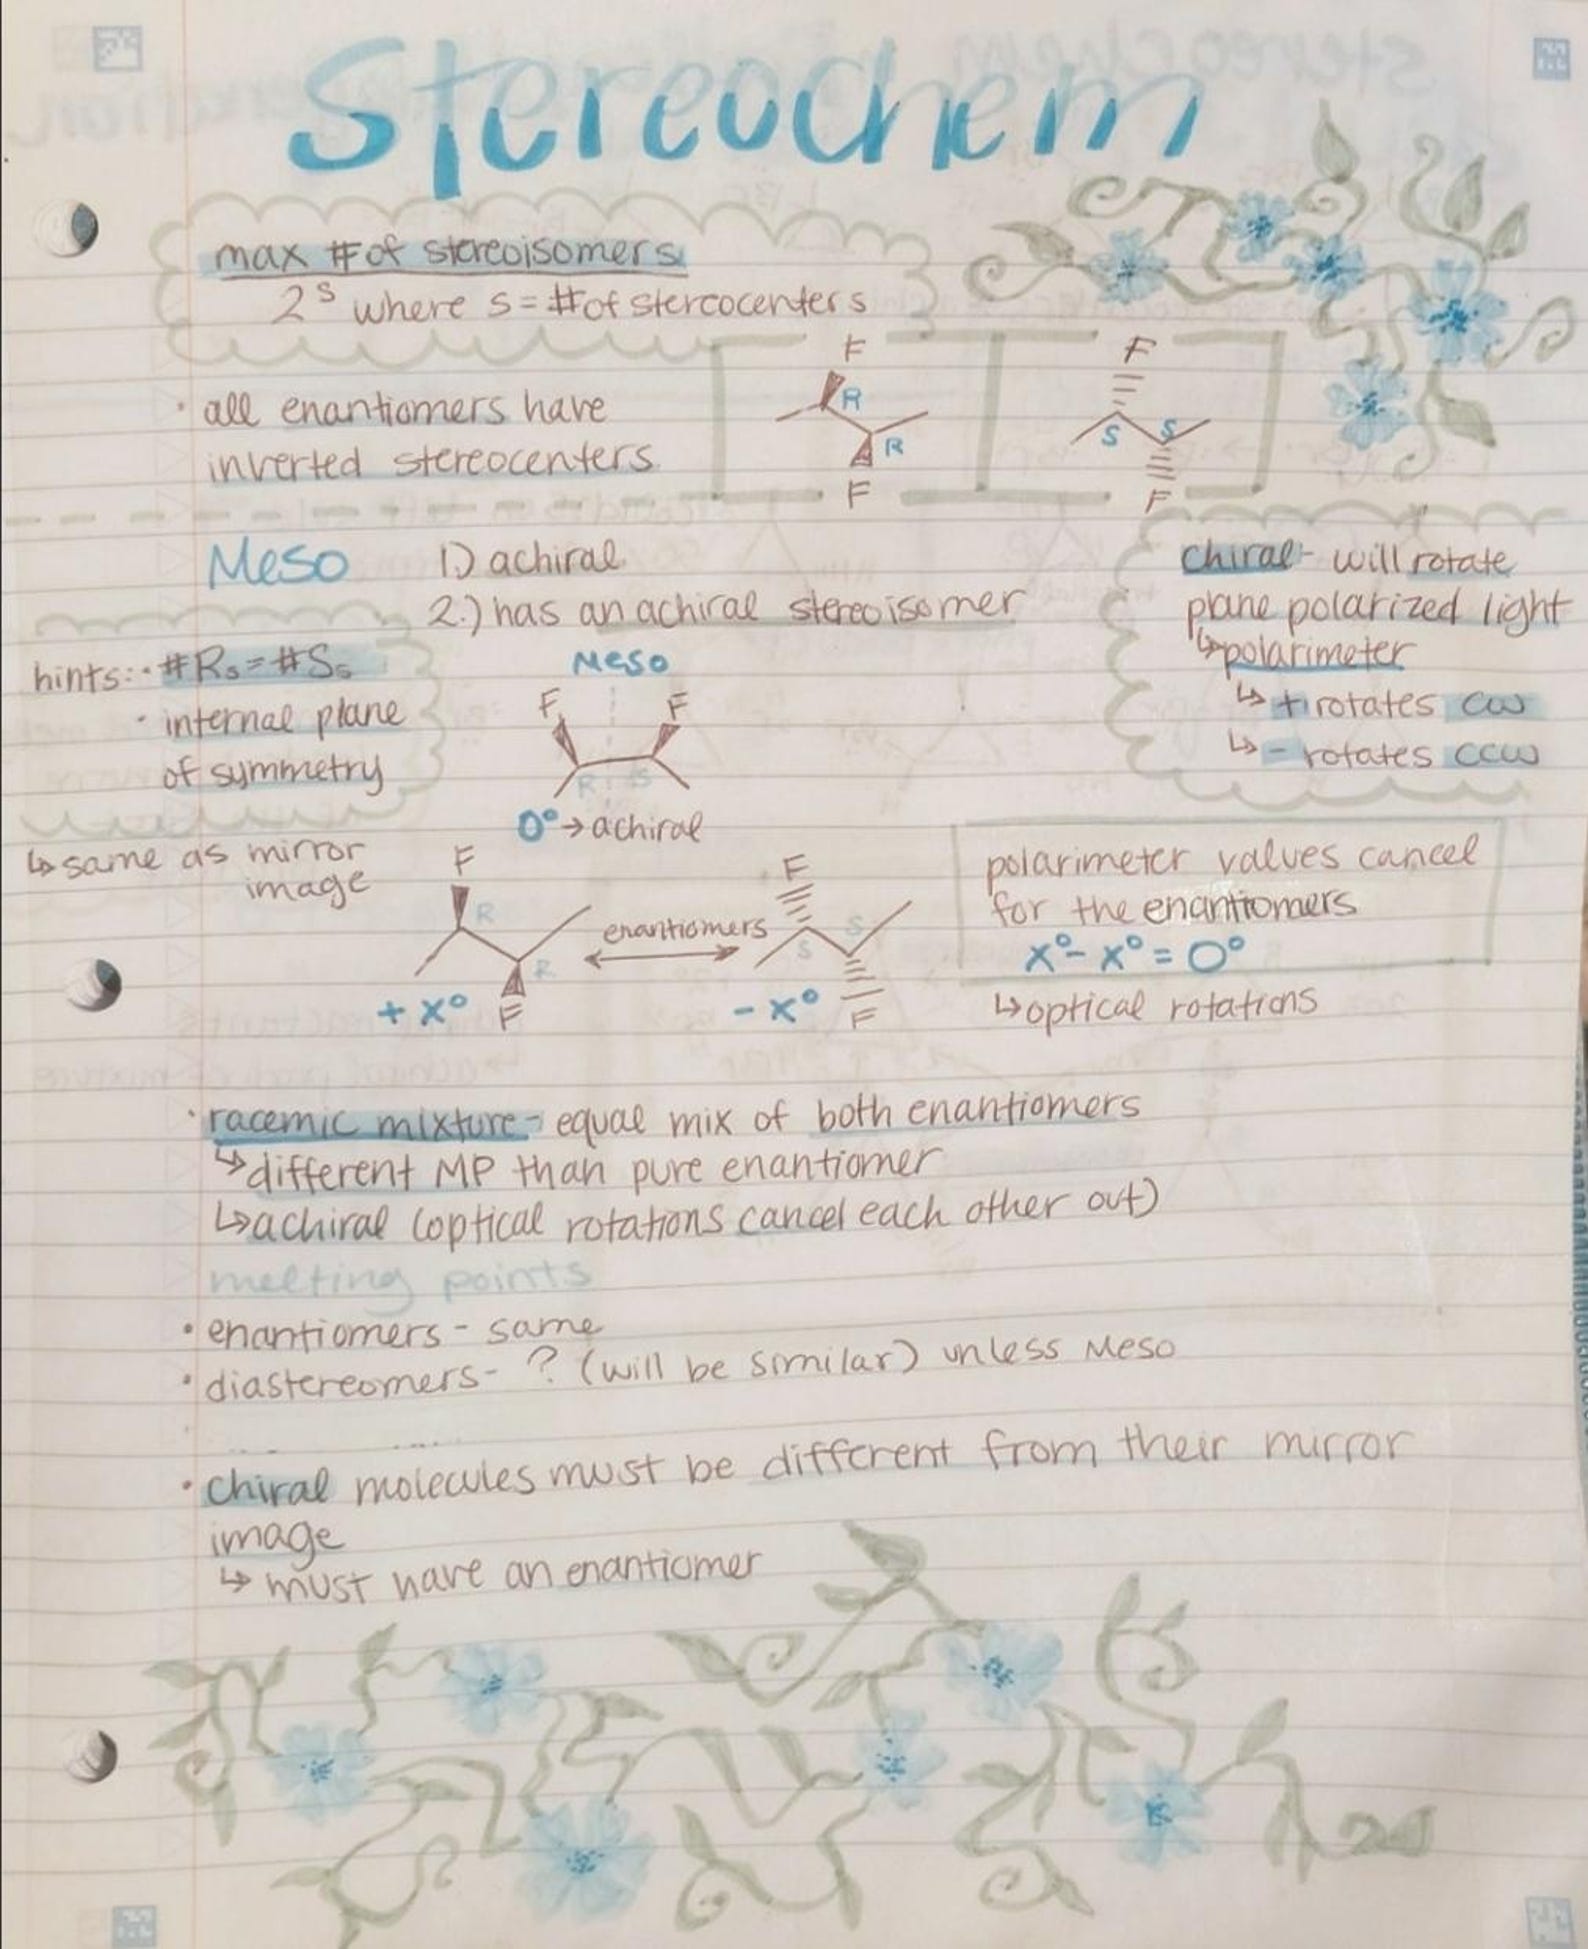 Stereochem
max # of stereoisomers
2^s where s = # of stereocenters
· all enantiomers have
inverted stereocenters
F
R
R
F
F
S
S
F
Meso
1.) achiral
2.) has an achiral stereoisomer
chiral - will rotate
plane polarized light
↳ polarimeter
↳ + rotates cw
↳ - rotates ccw
hints: · #Rs = #Ss
· internal plane
of symmetry
↳ same as mirror
image
Meso
F F
R S
0° → achiral
F
R
R
F
+ x°
enantiomers
F
S
S
F
- x°
polarimeter values cancel
for the enantiomers
x° - x° = 0°
↳ optical rotations
· racemic mixture - equal mix of both enantiomers
↳ different MP than pure enantiomer
↳ achiral (optical rotations cancel each other out)
melting points
· enantiomers - same
· diastereomers - ? (will be similar) unless Meso
· chiral molecules must be different from their mirror
image
↳ must have an enantiomer